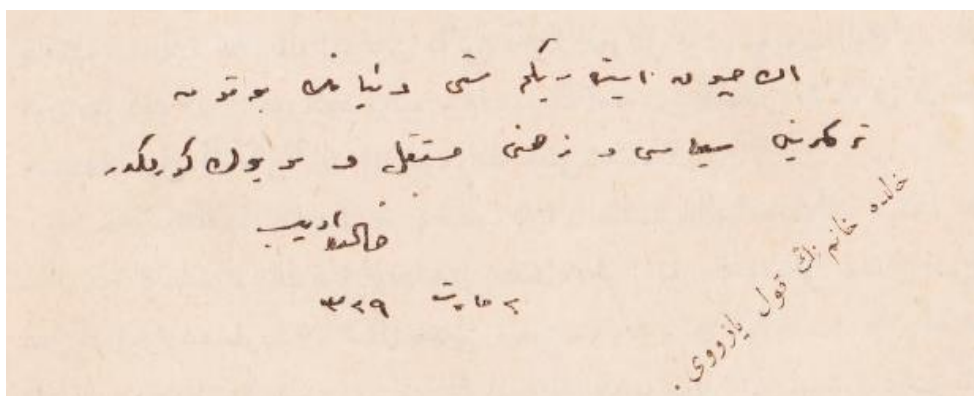 اك چوق ايسته ديكم شى دنيانك بوتون
تركلرينى سياسى و ذهنى مستقل و بويوك كورمكدر
خالده اديب
٢ مارت ٣٢٩
خالده خانم نڭ قول يازووى.